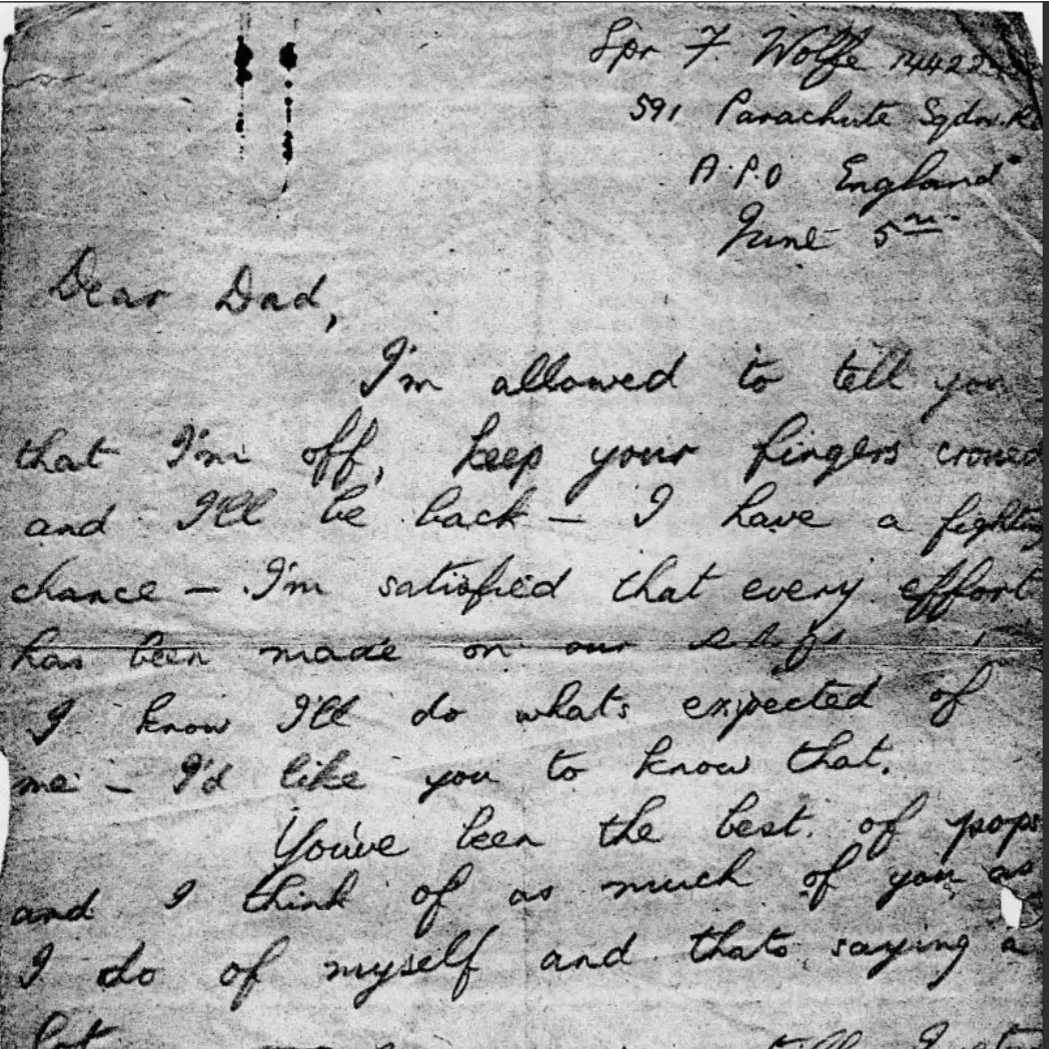 Spr F. Wolfe
591 Parachute Sqdn. R
A.P.O England
June 5th
Dear Dad,
I'm allowed to tell you
that I'm off, keep your fingers crossed
and I'll be back – I have a fighting
chance – I'm satisfied that every effort
has been made on our
I know I'll do whats expected of
me – I'd like you to know that.
You've been the best of pops
and I think of as much of you as
I do of myself and thats saying a
lot